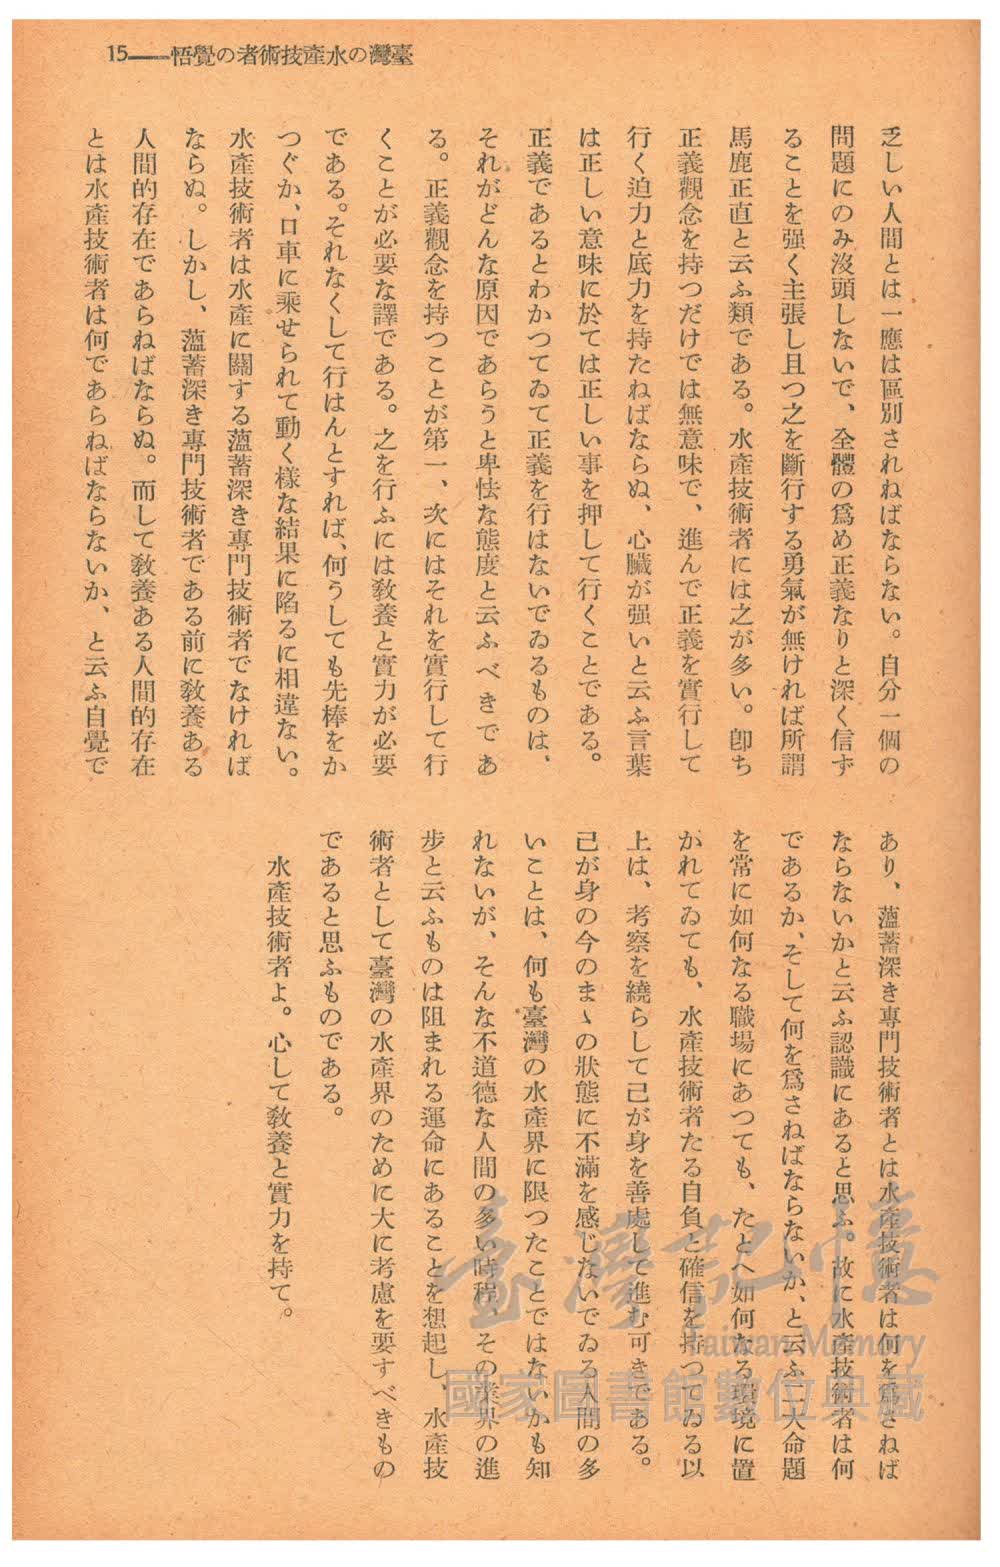 臺灣の水產技術者の覺悟——15
乏しい人間とは一應は區別されねばならない。自分一個の
問題にのみ沒頭しないで、全體の爲め正義なりと深く信ず
ることを强く主張し且つ之を斷行する勇氣が無ければ所謂
馬鹿正直と云ふ類である。水產技術者には之が多い。卽ち
正義觀念を持つだけでは無意味で、進んで正義を實行して
行く迫力と底力を持たねばならぬ、心臟が强いと云ふ言葉
は正しい意味に於ては正しい事を押して行くことである。
正義であるとわかつてゐて正義を行はないでゐるものは、
それがどんな原因であらうと卑怯な態度と云ふべきであ
る。正義觀念を持つことが第一、次にはそれを實行して行
くことが必要な譯である。之を行ふには敎養と實力が必要
である。それなくして行はんとすれば、何うしても先棒をか
つぐか、口車に乘せられて動く樣な結果に陷るに相違ない。
水產技術者は水產に關する薀蓄深き專門技術者でなければ
ならぬ。しかし、薀蓄深き專門技術者である前に敎養ある
人間的存在であらねばならぬ。而して敎養ある人間的存在
とは水產技術者は何であらねばならないか、と云ふ自覺で
あり、薀蓄深き專門技術者とは水產技術者は何を爲さねば
ならないかと云ふ認識にあると思ふ。故に水產技術者は何
であるか、そして何を爲さねばならないか、と云ふ二大命題
を常に如何なる職場にあつても、たとへ如何なる環境に置
かれてゐても、水產技術者たる自負と確信を持つてゐる以
上は、考察を繞らして己が身を善處して進む可きである。
己が身の今のまゝの狀態に不滿を感じないでゐる人間の多
いことは、何も臺灣の水產界に限つたことではないかも知
れないが、そんな不道德な人間の多い時程、その業界の進
步と云ふものは阻まれる運命にあることを想起し、水產技
術者として臺灣の水產界のために大に考慮を要すべきもの
であると思ふものである。
水產技術者よ。心して敎養と實力を持て。
臺灣記憶
Taiwan Memory
國家圖書館數位典藏